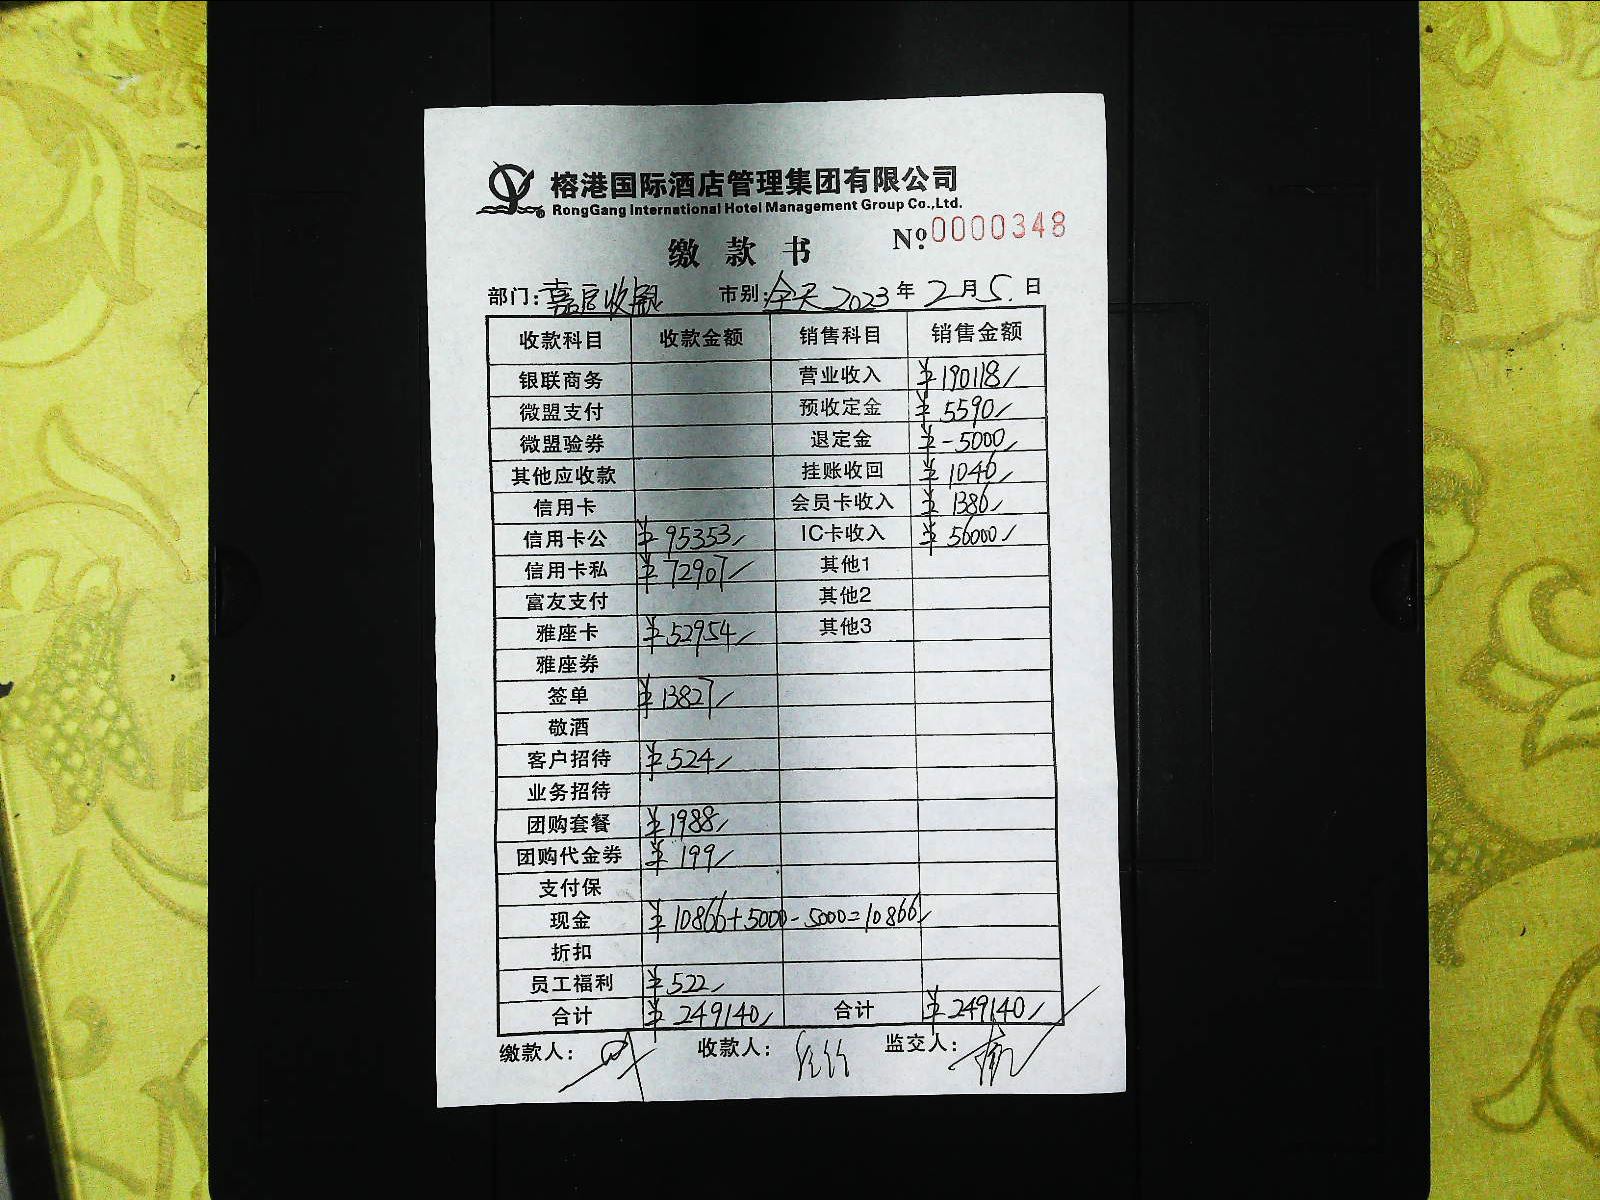 榕港国际酒店管理集团有限公司
RongGang International Hotel Management Group Co.,Ltd.
缴款书 Nº 0000348
部门: 嘉 收银 市别: 全天 2023 年 2 月 5. 日
收款科目 收款金额 销售科目 销售金额
银联商务 营业收入 ¥190118/
微盟支付 预收定金 ¥5590/
微盟验券 退定金 ¥-5000/
其他应收款 挂账收回 ¥1046/
信用卡 会员卡收入 ¥1386/
信用卡公 ¥95353/ IC卡收入 ¥56000/
信用卡私 ¥72907/ 其他1
富友支付 其他2
雅座卡 ¥52954/ 其他3
雅座券
签单 ¥13827/
敬酒
客户招待 ¥524/
业务招待
团购套餐 ¥1988/
团购代金券 ¥199/
支付保
现金 ¥10866+5000-5000=10866/
折扣
员工福利 ¥522/
合计 ¥249140/ 合计 ¥249140/
缴款人: 收款人: 监交人: